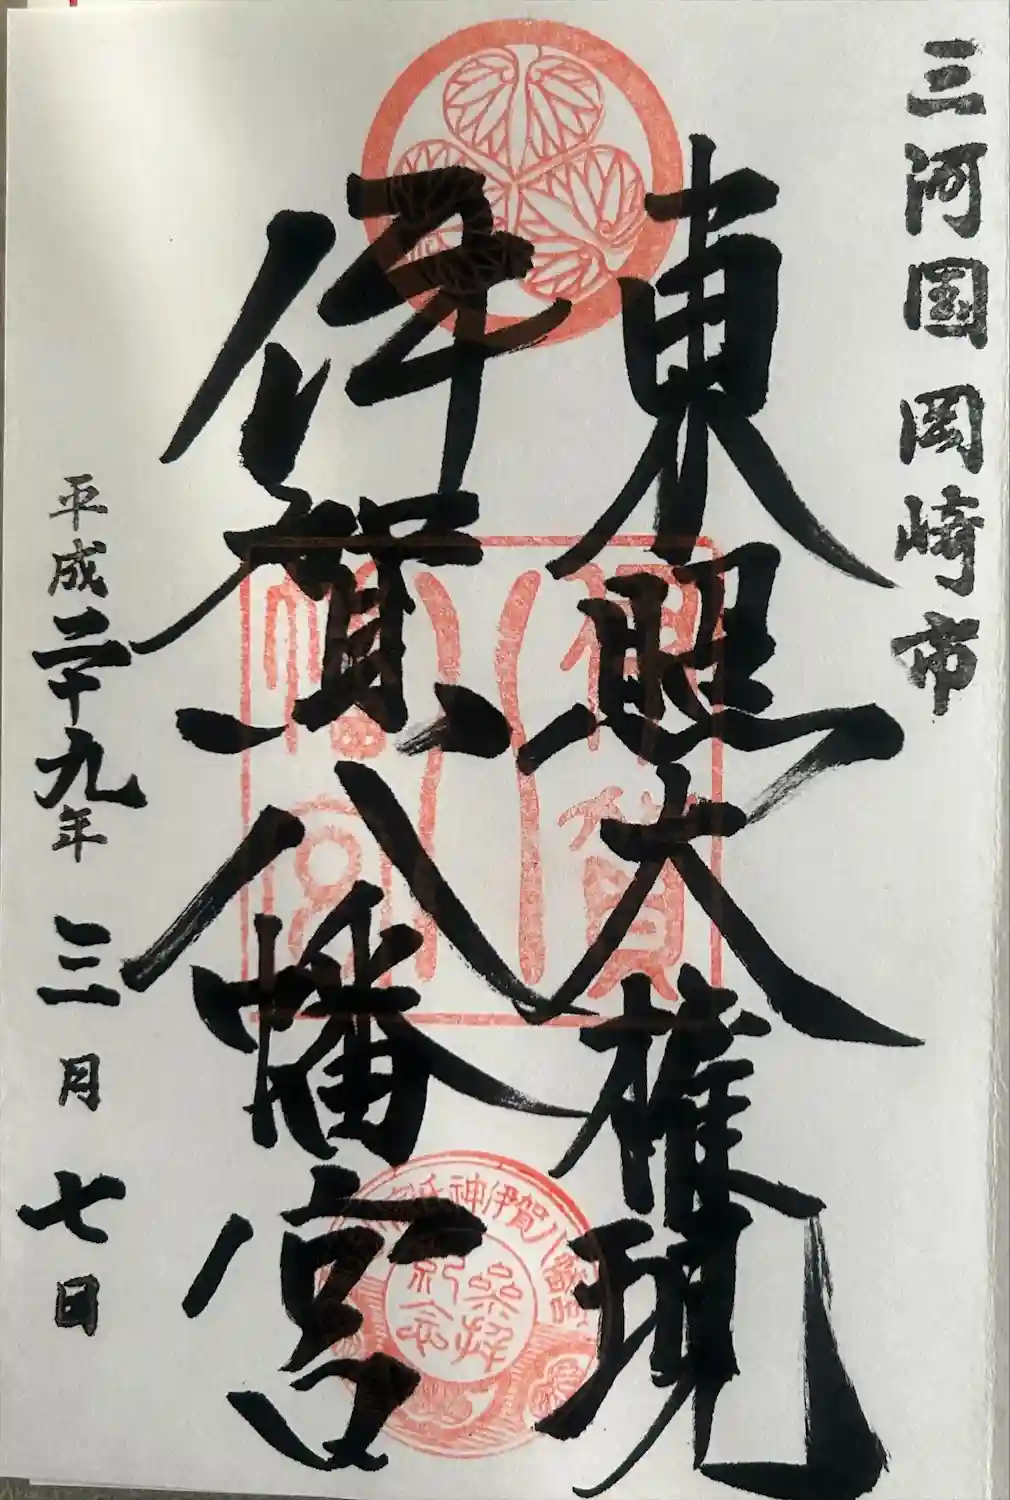 三河国 岡崎市
東照大権現
伊賀八幡宮
平成二十九年 三月 七日
伊賀八幡宮
神伊賀八幡宮
参拝紀念